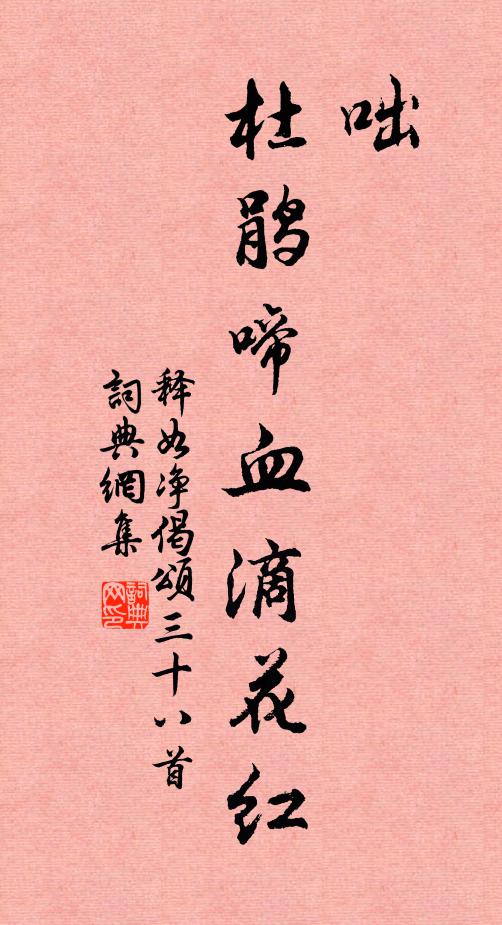 咄
杜鹃啼血滴花红
释如净偈颂三十八首
詞典網集
詞典网印